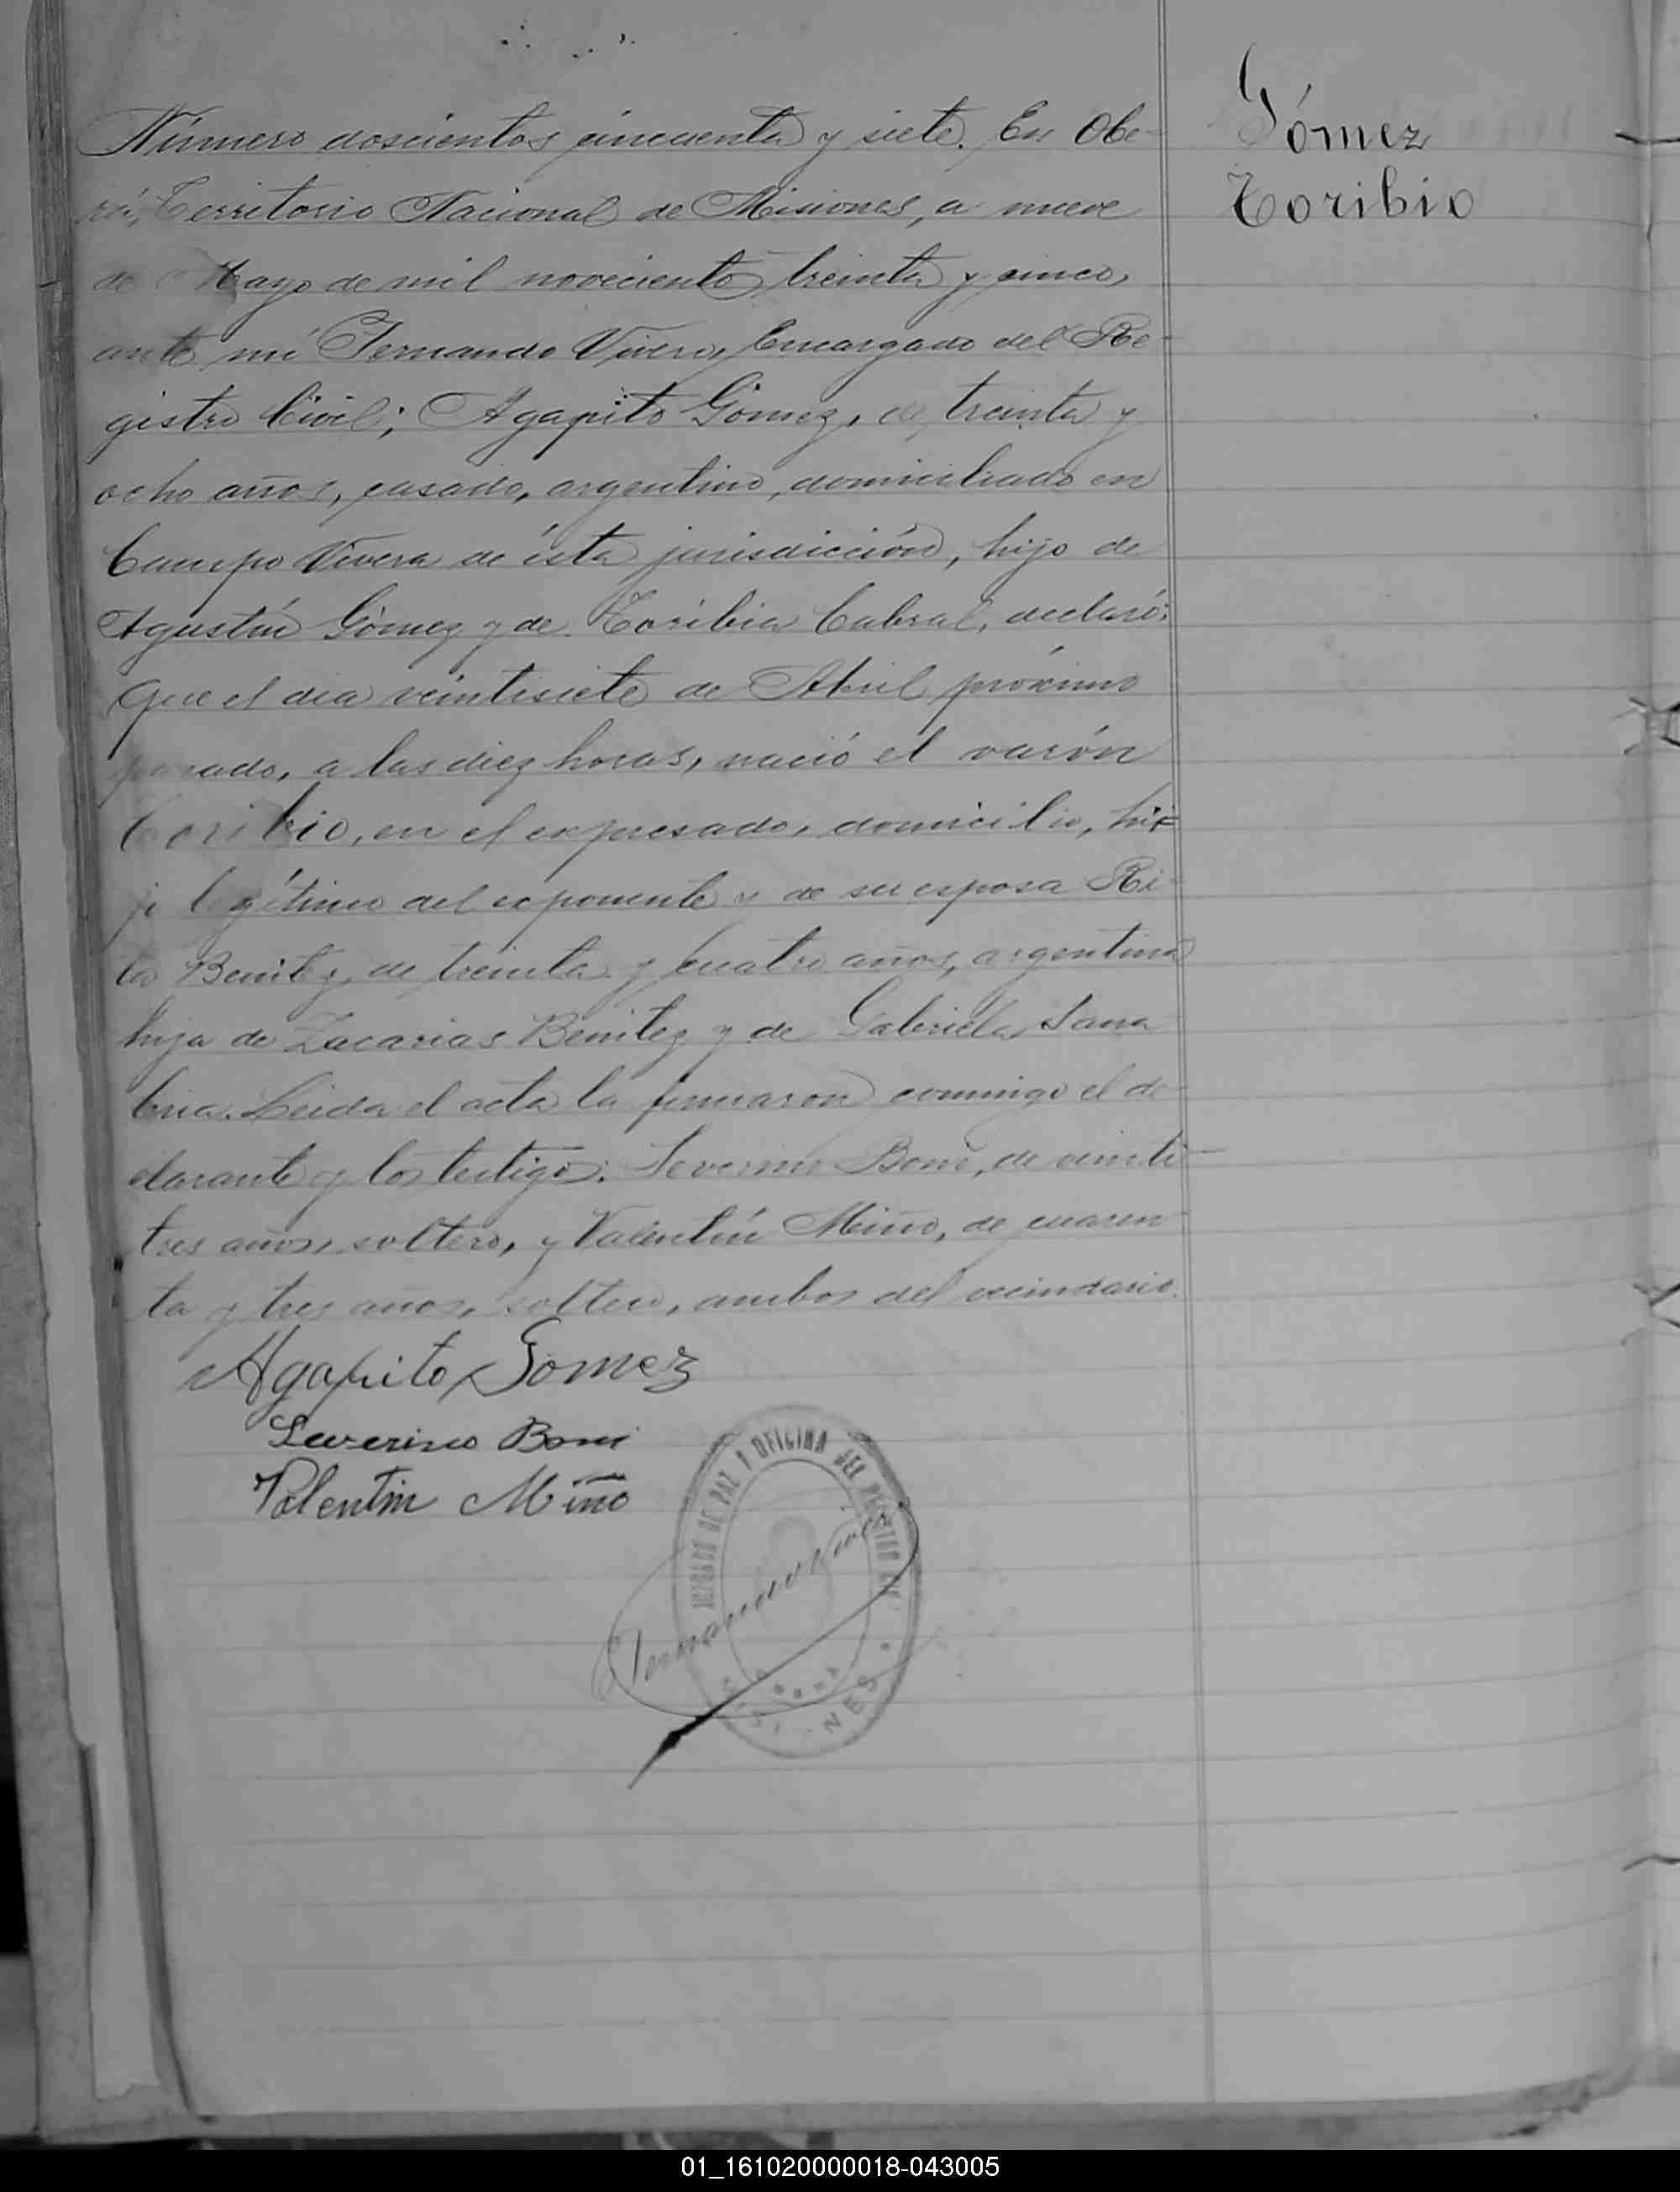 Número doscientos cincuenta y siete. En Obe-
rá, Territorio Nacional de Misiones, a nueve
de Mayo de mil novecientos treinta y cinco,
ante mí Fernando Vivero, Encargado del Re-
gistro Civil; Agapito Gómez, de treinta y
ocho años, casado, argentino, domiciliado en
Campo Vivera de ésta jurisdicción, hijo de
Agustín Gómez y de Toribia Cabral, declaró:
Que el día veintisiete de Abril próximo
pasado, a las diez horas, nació el varón
Toribio, en el expresado, domicilio, hi-
jo legítimo del exponente y de su esposa Ri-
ta Benitez, de treinta y cuatro años, argentina
hija de Zacarias Benitez y de Gabriela Sana
bria. Leida el acta la firmaron conmigo el de-
clarante y los testigos: Severino Boni, de veinti-
tres años, soltero, y Valentín Miño, de cuaren-
ta y tres años, soltero, ambos del vecindario.
Agapito Gomez
Severino Boni
Valentin Miño
JUZGADO DE PAZ Y OFICINA DEL REGISTRO
Fernando
Gómez
Toribio
01_161020000018-043005